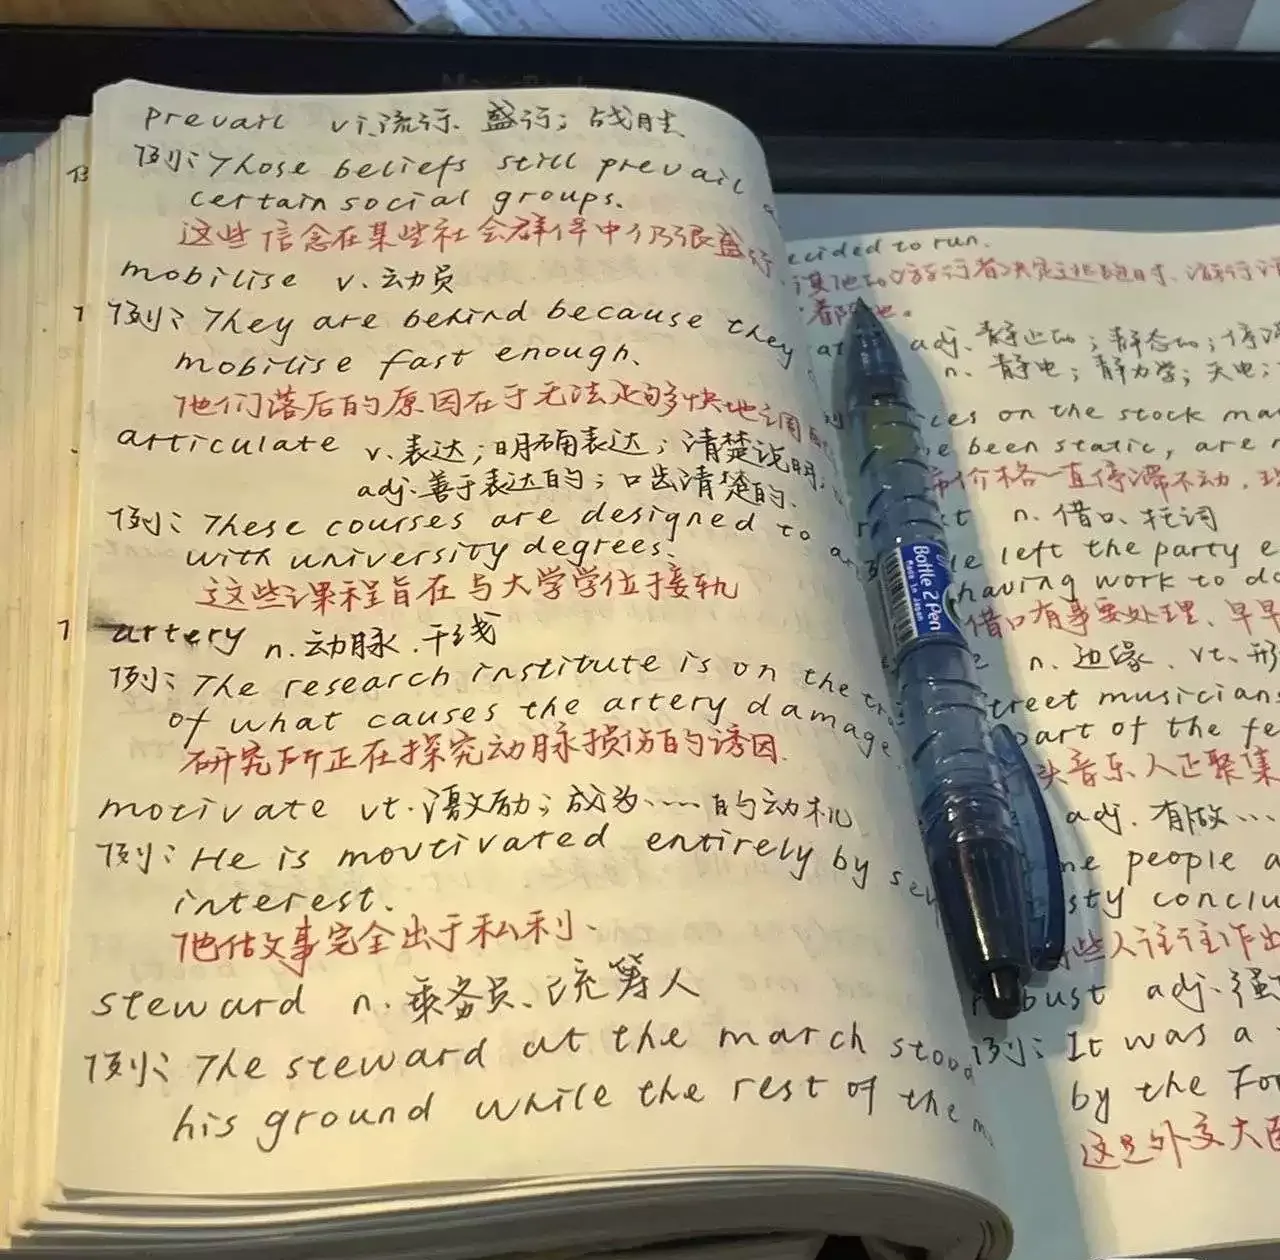 prevail vi.流行、盛行；战胜
例：Those beliefs still prevail
certain social groups.
这些信念在某些社会群体中仍很盛行
mobilise v.动员
例：They are behind because they
mobilise fast enough.
他们落后的原因在于无法足够快地调
articulate v.表达；明确表达；清楚说明.
adj.善于表达的；口齿清楚的.
例：These courses are designed to
with university degrees.
这些课程旨在与大学学位接轨
artery n.动脉.干线
例：The research institute is on the
of what causes the artery damage.
研究所正在探究动脉损伤的诱因.
motivate vt.激励；成为……的动机
例：He is movtivated entirely by
interest.
他做事完全出于私利.
steward n.乘务员、统筹人
例：The steward at the march stood
his ground while the rest of the
ecided to run.
其他的游行者决定逃跑时、游行
adj.静止的；静态的；停滞
n.静电；静力学；天电；
ces on the stock ma
e been static, are
市价格一直停滞不动.
n.借口、托词
e left the party e
having work to do
借口有事要处理、早早
n.边缘. vt.形
treet musician
part of the fe
头音乐人正聚集
adj.有做…
me people a
sty conclu
些人往往作出
bust adj.强
例：It was a
by the Fo
这是外交大臣
Bottle 2 Pen
Made in Japan